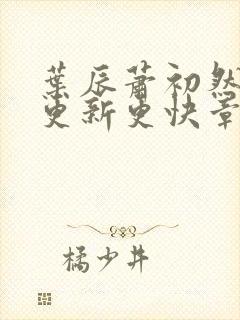 葉辰蕭初然
更新更快章
橘少井